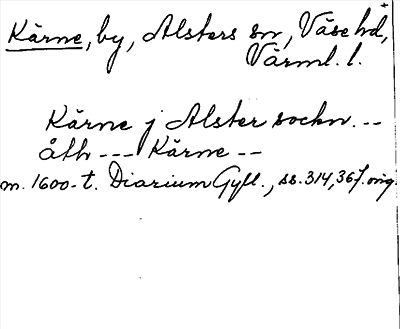 Kärne, by, Alsters sn, Väse hd,
Värml. l.
Kärne j Alster sockn. --
åth --- Kärne --
m. 1600-t. Diarium Gyll., ss. 314, 367. orig.